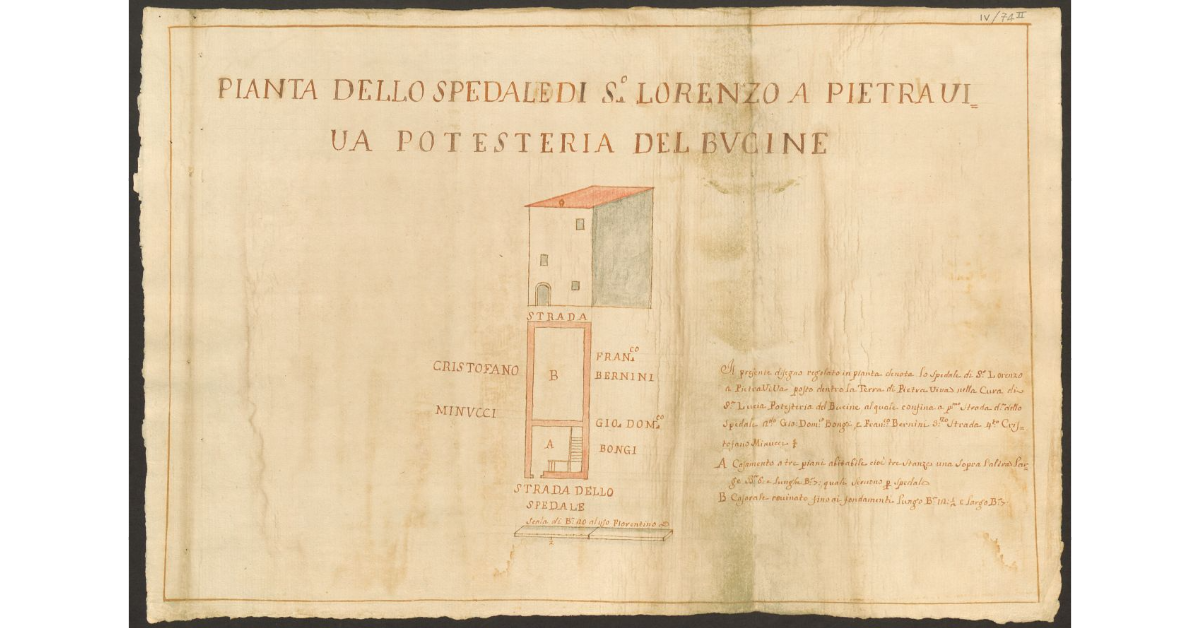 IV/74 II
PIANTA DELLO SPEDALE DI S.º LORENZO A PIETRAVI=
UA POTESTERIA DEL BVCINE
STRADA
CRISTOFANO
MINVCCI
B
FRAN.CO
BERNINI
A
GIO. DOM.CO
BONGI
STRADA DELLO
SPEDALE
Scala di B.a 40 al uso Fiorentino
Il presente disegno regolato in pianta denota lo Spedale di S.º Lorenzo
a PietraViVa posto dentro la Terra di Pietra Viva nella Cura di
S.ta Lucia Potesteria del Bucine al quale confina a p.mo Strada d.a dello
Spedale 2.do Gio: Dom.co Bongi, e Fran.co Bernini 3.zo Strada 4.to Cris=
tofano Minucci
A Casamento a tre piani abitabile cioè tre stanze una sopra l'altra Lar=
ghe B.a 6. e Lunghe B.a quali servono p spedale
B Casarale rovinato fino ai fondamenti Lungo B.a 14 e Largo B.a